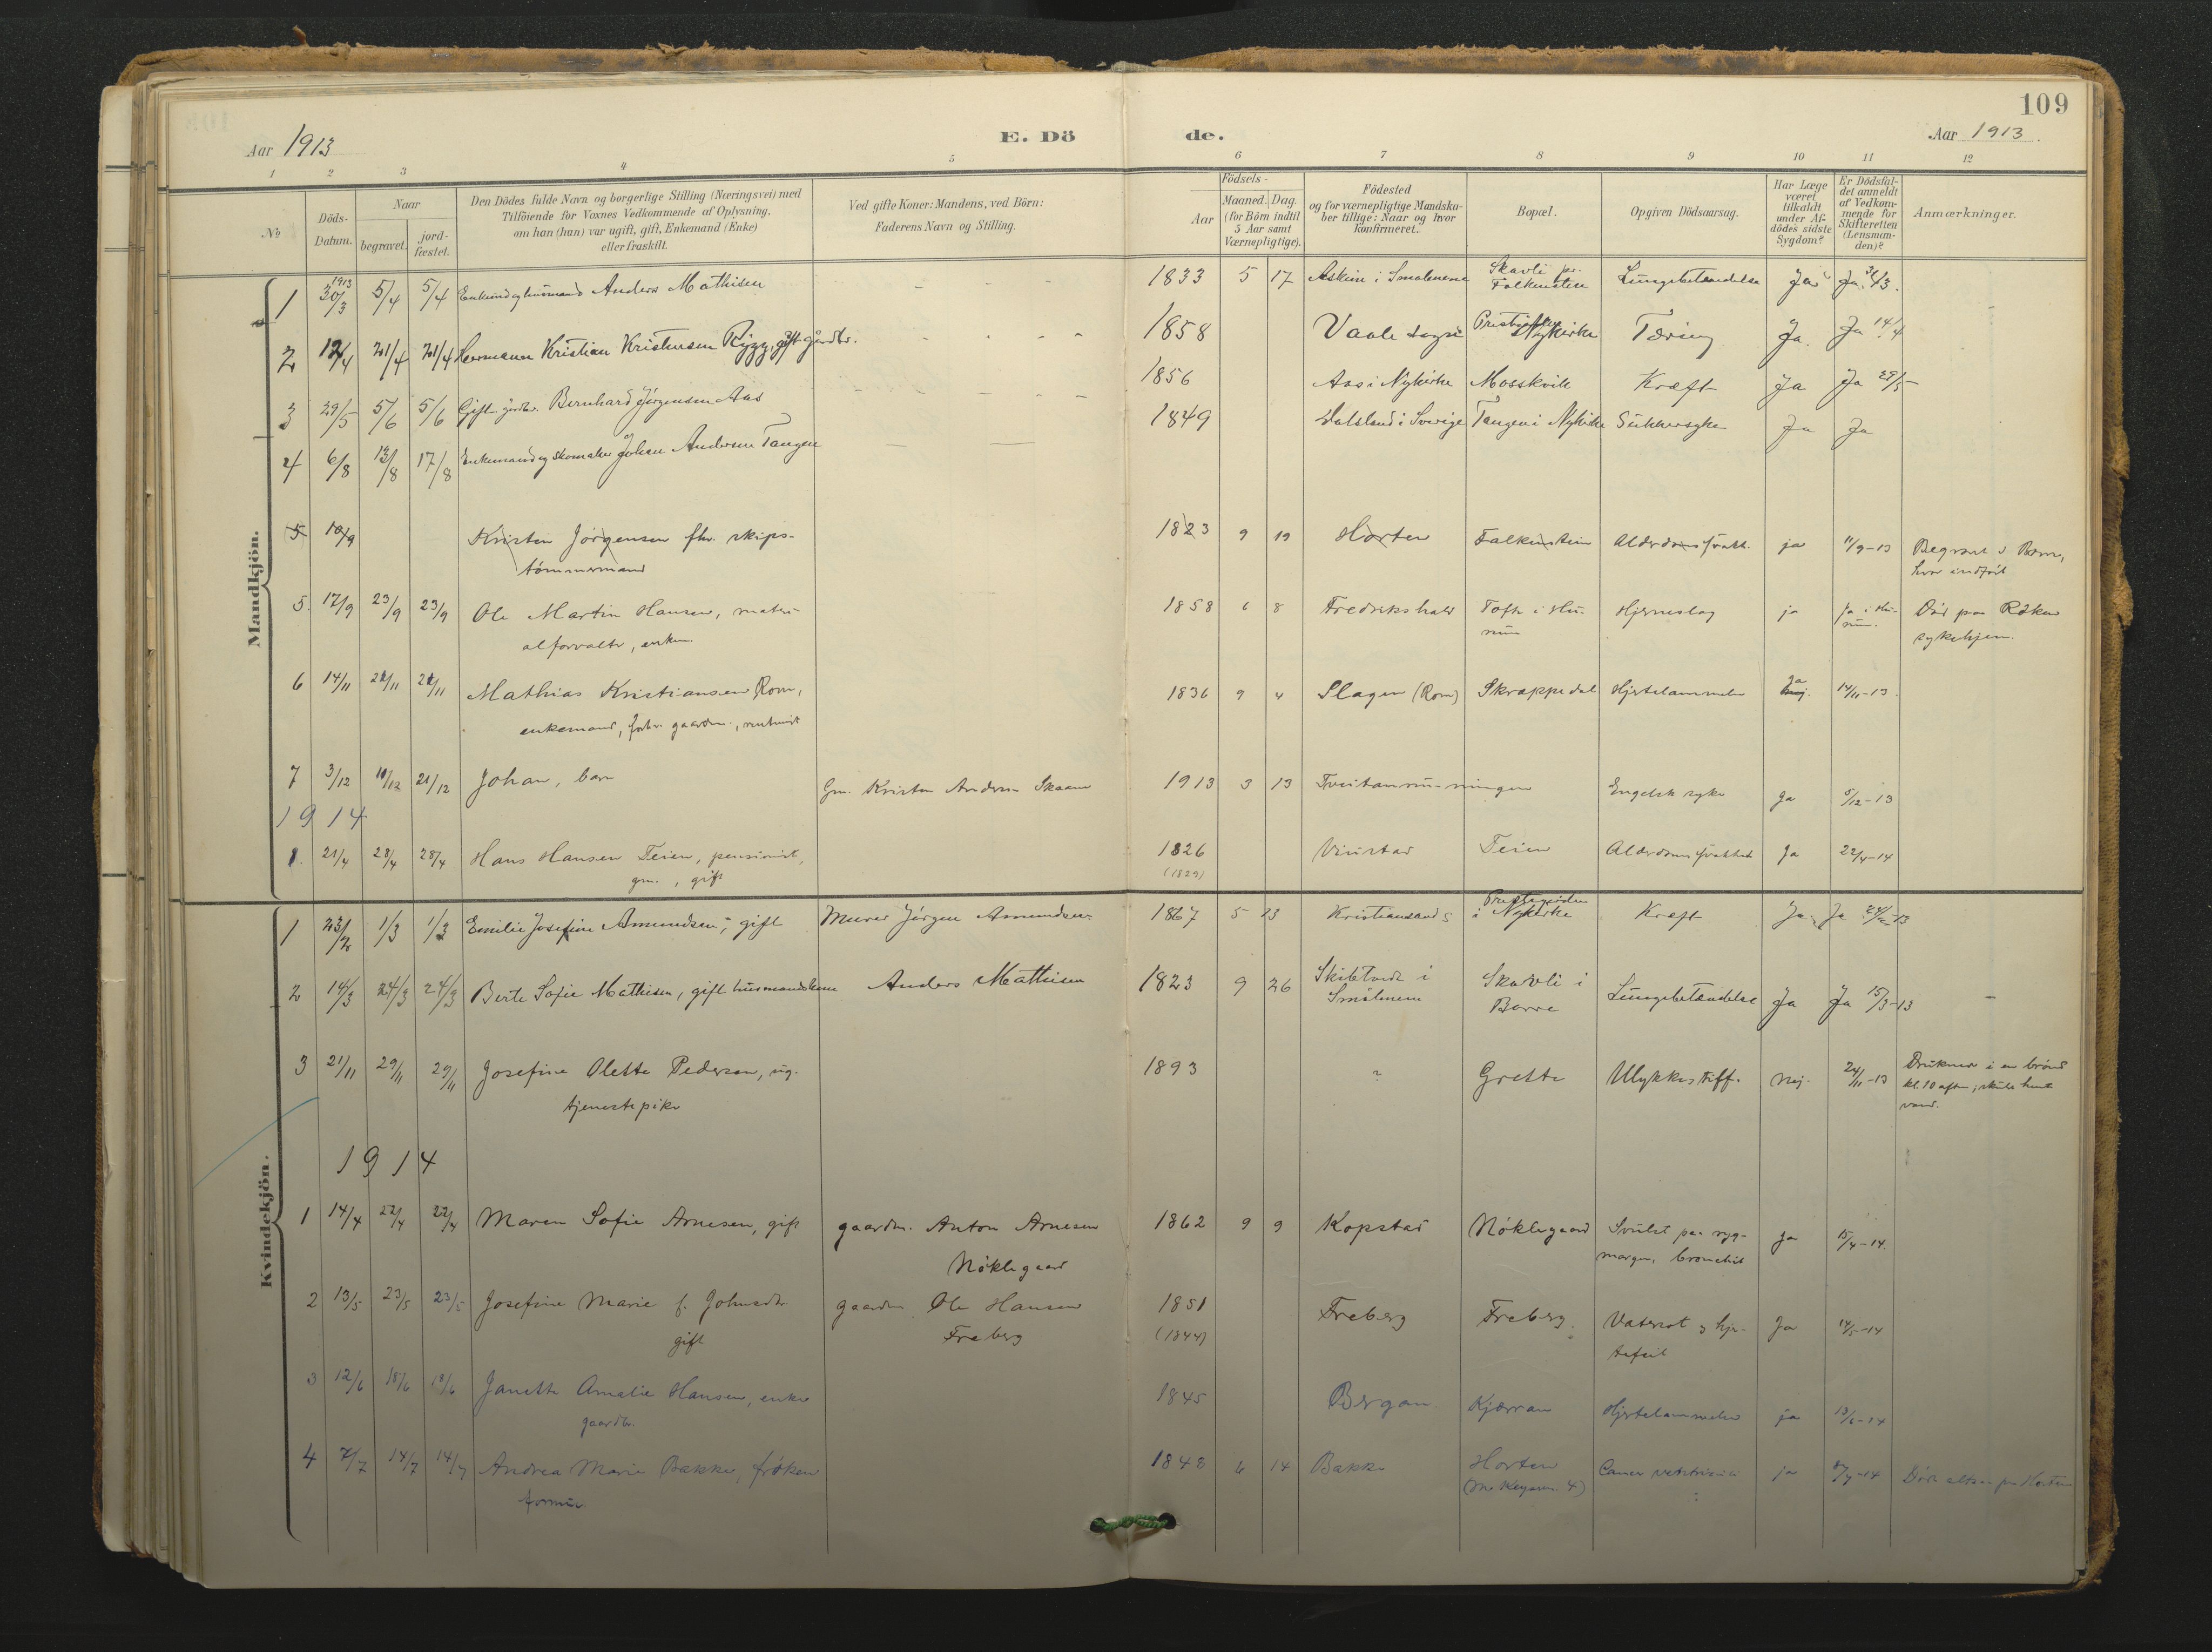 109
Aar 1913
E. Dö
de.
Aar 1913.
1 2 3 4 5 6 7 8 9 10 11 12
No
Döds-
Datum.
Naar
begravet.
jord-
fæstet.
Den Dödes fulde Navn og borgerlige Stilling (Næringsvei) med
Tilföiende for Voxnes Vedkommende af Oplysning,
om han (hun) var ugift, gift, Enkemand (Enke)
eller fraskilt.
Ved gifte Koner: Mandens, ved Börn:
Faderens Navn og Stilling.
Födsels-
Aar
Maaned. Dag.
(for Börn indtil
5 Aar samt
Værnepligtige).
Födested
og for værnepligtige Mandska-
ber tillige: Naar og hvor
konfirmeret.
Bopæl.
Opgiven Dödsaarsag.
Har Læge
været
tilkaldt
under Af-
dödes sidste
Sygdom?
Er Dödsfal-
det anmeldt
af Vedkom-
mende for
Skifteretten
(Lensman-
den)?
Anmærkninger.
Mandkjön.
1 1913 30/3 5/4 5/4 Enkemd og husmand Anders Mathisen 1833 5 17 Askim i Smalenene Skavli Falkensten Lungebetændelse Ja Ja 31/3.
2 12/4 21/4 21/4 Hermann Kristian Kristensen Rygg, gift gårdbr. 1858 Vaale sogn Nykirke Tæring Ja. Ja 14/4
3 29/5 5/6 5/6 Gift gårdbr. Bernhard Jørgensen Aas 1856 Aas i Nykirke Mosskvile Kræft Ja Ja 29/5
4 6/8 13/8 17/8 Enkemand og skomaker Johan Andersen Tangen 1849 Dalsland i Sverige Tangen i Nykirke Sukkersyke Ja Ja
5 10/9 Kristen Jörgensen fhv. skips-
tömmermand 1823 9 19 Horten Falkensten Alderdomssvakh. ja 11/9-13 Begravet i Borre,
hvor indført
5. 17/9 23/9 23/9 Ole Martin Hansen, materi-
alforvalter, enkem. 1858 6 8 Fredrikshald Tofte i Hu-
rum Hjerneslag ja Ja i Hu-
rum. Död paa Röken
sykehjem.
6 14/11 21/11 21/11 Mathias Kristiansen Rom,
enkemand, forhv. gaardm., rentenist 1836 9 4 Slagen (Rom) Skrappedal Hjertelammelse Ja nej. 14/11-13.
7 3/12 10/12 21/12 Johan, barn Gm. Kristen Andersen Skaane 1913 3 13 Tveitanrunningen Engelsk syke Ja 5/12-13
1914
1. 21/4 28/4 28/4 Hans Hansen Teien, pensionist,
gm., gift 1826
(1829) Teien Alderdomssvakhet Ja 22/4-14
Kvindekjön.
1 23/2 1/3 1/3 Emilie Josefine Amundsen, gift Murer Jörgen Amundsen 1867 5 13 Kristianssand S Prestegården
i Nykirke Kræft Ja. Ja 24/2-13
2 14/3 24/3 24/3 Berte Sofie Mathisen, gift husmandskone Anders Mathisen 1823 9 26 Skibtvedt i
Smålenene Skavli i
Borre Lungebetændelse Ja Ja 15/3-13
3 21/11 29/11 29/11 Josefine Olette Pedersen, ug.
tjenestepike 1893 ? Grette Ulykkestilf. nej. 24/11-13 Druknet i en brönd
kl. 10 aften, skulde hente
vand.
1914
1 14/4 22/4 22/4 Maren Sofie Arnesen, gift gaardm. Anton Arnesen
Nöklegaard 1862 9 9 Kopstad Nöklegaard Svulst paa ryg-
margen, bronchit Ja 15/4-14.
2 13/5 23/5 23/5 Josefine Marie f. Johnsdtr.
gift gaardm. Ole Hansen
Freberg 1851
(1844) Freberg Freberg. Vatersot og hjer-
tefeil Ja 14/5-14
3 12/6 18/6 18/6 Janette Amalie Hansen, enke
gaardbr. 1845 Bergan Kjærran Hjertelammelse ja 13/6-14
4 7/7 14/7 14/7 Andrea Marie Bakke, fröken
formue 1848 6 14 Bakke Horten
Cancer ja 8/7-14 Död paa Horten